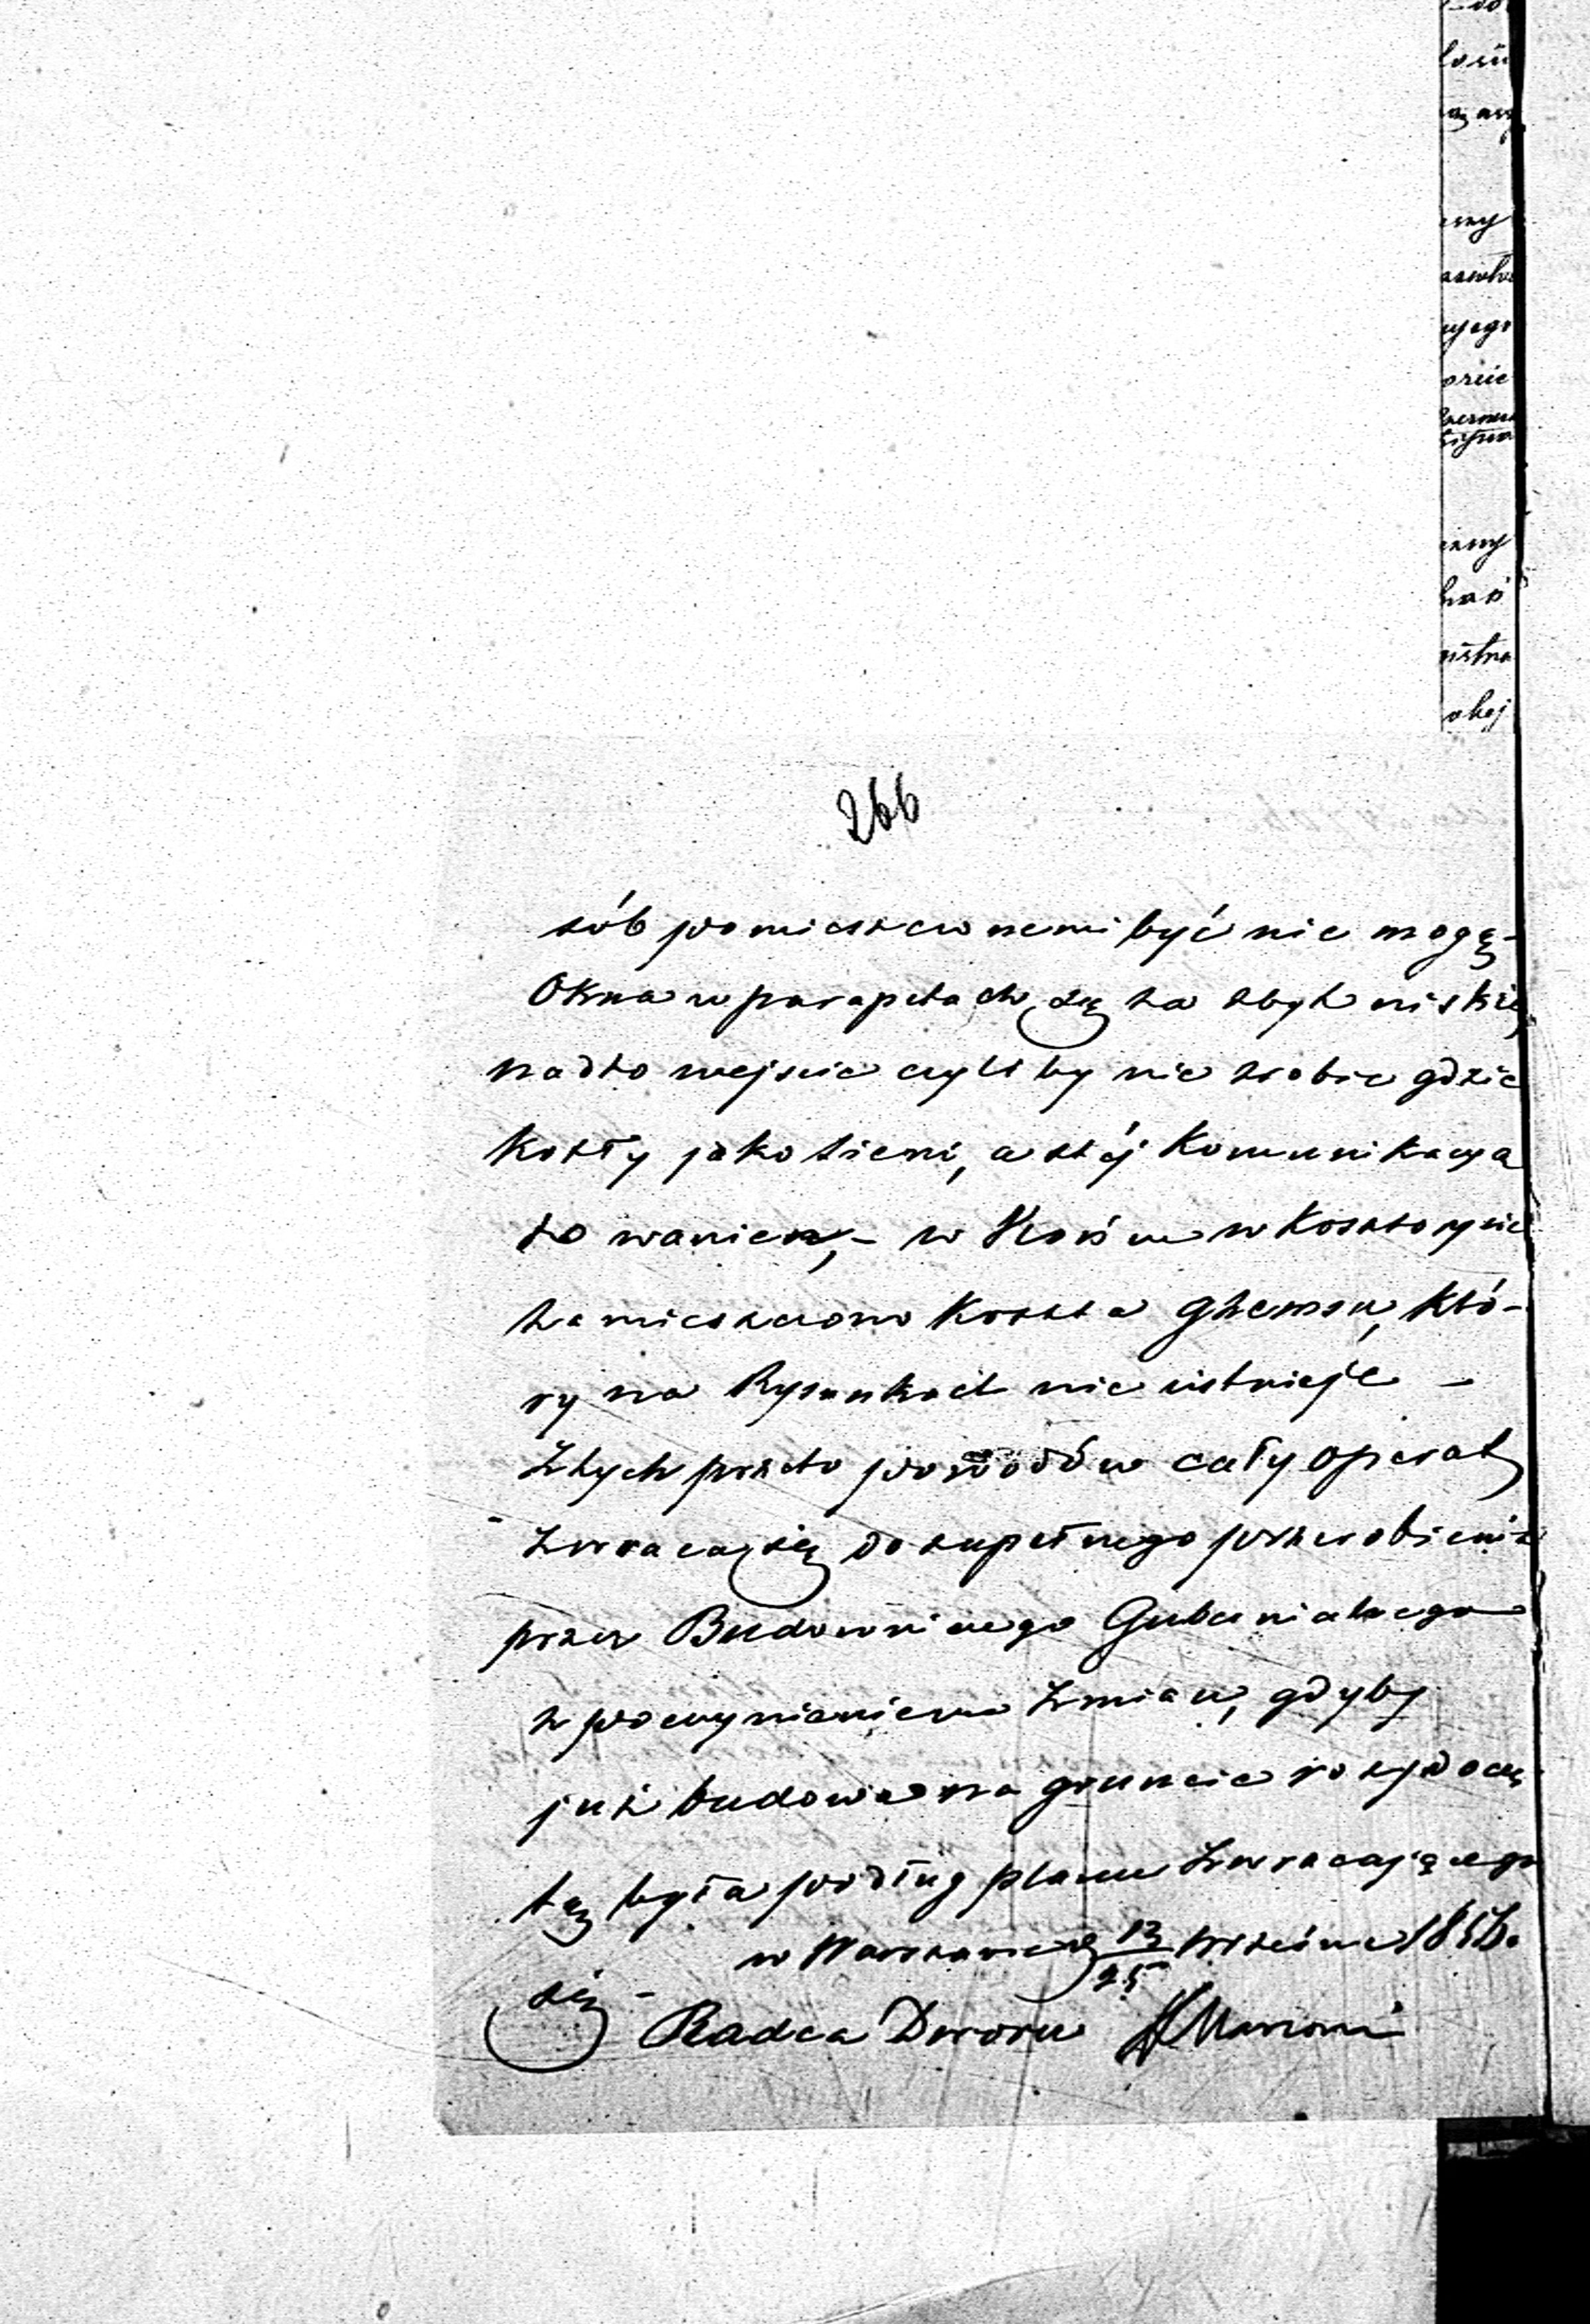 266
sób pomieszczonemi być nie mogą -
Okna w parapetach są za zbyt niskie,
nadto wejście czyliby nie zrobić gdzie
kotły jako sieni, a z téj komunikacya
do wanien, - w Końcu w Kosztorysie
zamieszczono koszta Gzemsu, któ-
ry na Rysunkach nie istnieje -
Z tych przeto powodów cały operat
zwraca się do zupełnego przerobienia
przez Budowniczego Gubernialnego
z poczynieniem zmian, gdyby
już budowa na gruncie rozpoczę
tą była podług planu zwracającego
się -
w Warszawie d 13/25 Września 185
Radca Dworu H Marconi